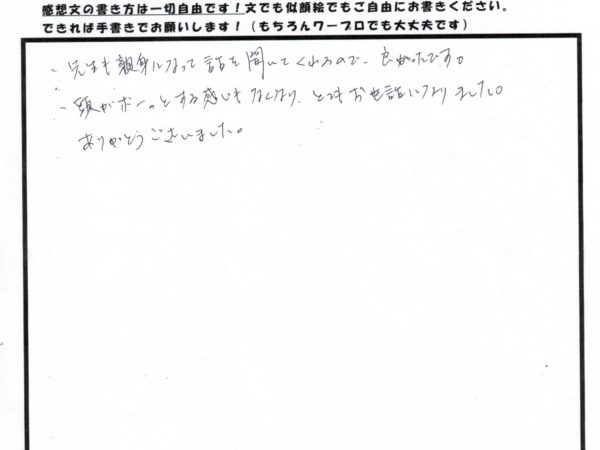 感想文の書き方は一切自由です！文でも似顔絵でもご自由にお書きください。
できれば手書きでお願いします！（もちろんワープロでも大丈夫です）
・先生も親身になって話を聞いてくれるので、良かったです。
・頭がボーっとする感じもなくなり、とてもお世話になりました。
ありがとうございました。